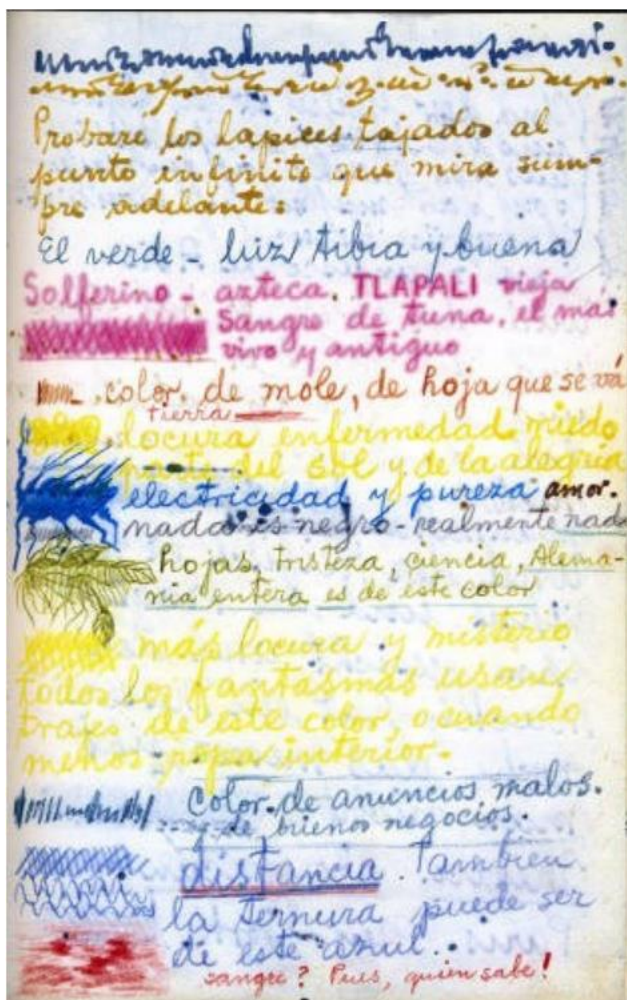 Probare los lapices tajados al
punto infinito que mira siem-
pre adelante:
El verde - luz tibia y buena
Solferino - azteca. TLAPALI vieja
Sangre de tuna, el más
vivo y antiguo
color de mole, de hoja que se vá
tierra
locura enfermedad miedo
parte del sol y de la alegria
electricidad y pureza amor.
nada es negro - realmente nada
hojas, tristeza, ciencia, Alema-
nia entera es de este color
más locura y misterio
todos los fantasmas usan
trajes de este color, o cuando
menos ropa interior.
color de anuncios malos.
y de buenos negocios.
distancia. Tambien
la ternura puede ser
de este azul..
sangre? Pues, quien sabe!